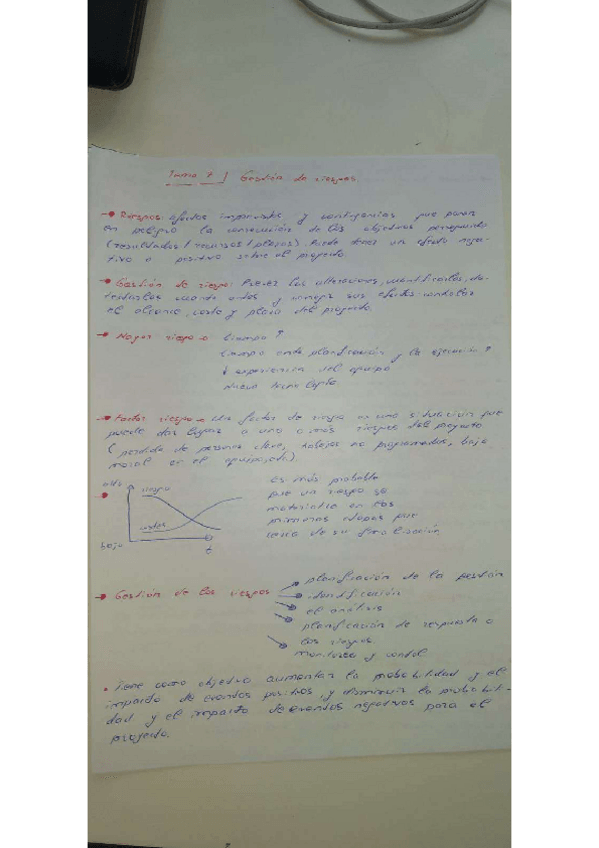 Tema 7 | Gestión de riesgos.
→ Riesgos: efectos imprevistos y contingencias que ponen
en peligro la consecución de los objetivos
(resultados / recursos / plazos). Puede tener un efecto nega-
tivo o positivo sobre el proyecto.
→ Gestión de riesgo: Prever las alteraciones, cuantificarlas, de-
tectarlas cuanto antes y sus efectos
el alcance, coste y plazo del proyecto.
→ Mayor riesgo → tiempo ↑
tiempo entre planificación y la ejecución ↑
↓ experiencia del equipo
Nueva tecnología
→ Factor riesgo → Un factor de riesgo es una situación que
puede dar lugar a uno o más riesgos del proyecto
(perdida de persona clave, trabajos no programados, baja
moral en el equipo).
alto riesgo
costes
bajo t
es más probable
que un riesgo se
materialice en las
primeras etapas que
cerca de su finalización
→ Gestión de los riesgos
planificación de la gestión
identificación
el análisis
planificación de respuesta a
los riesgos.
y control
• Tiene como objetivo aumentar la probabilidad y el
impacto de eventos positivos, y disminuir la probabili-
dad y el impacto de eventos negativos para el
proyecto.